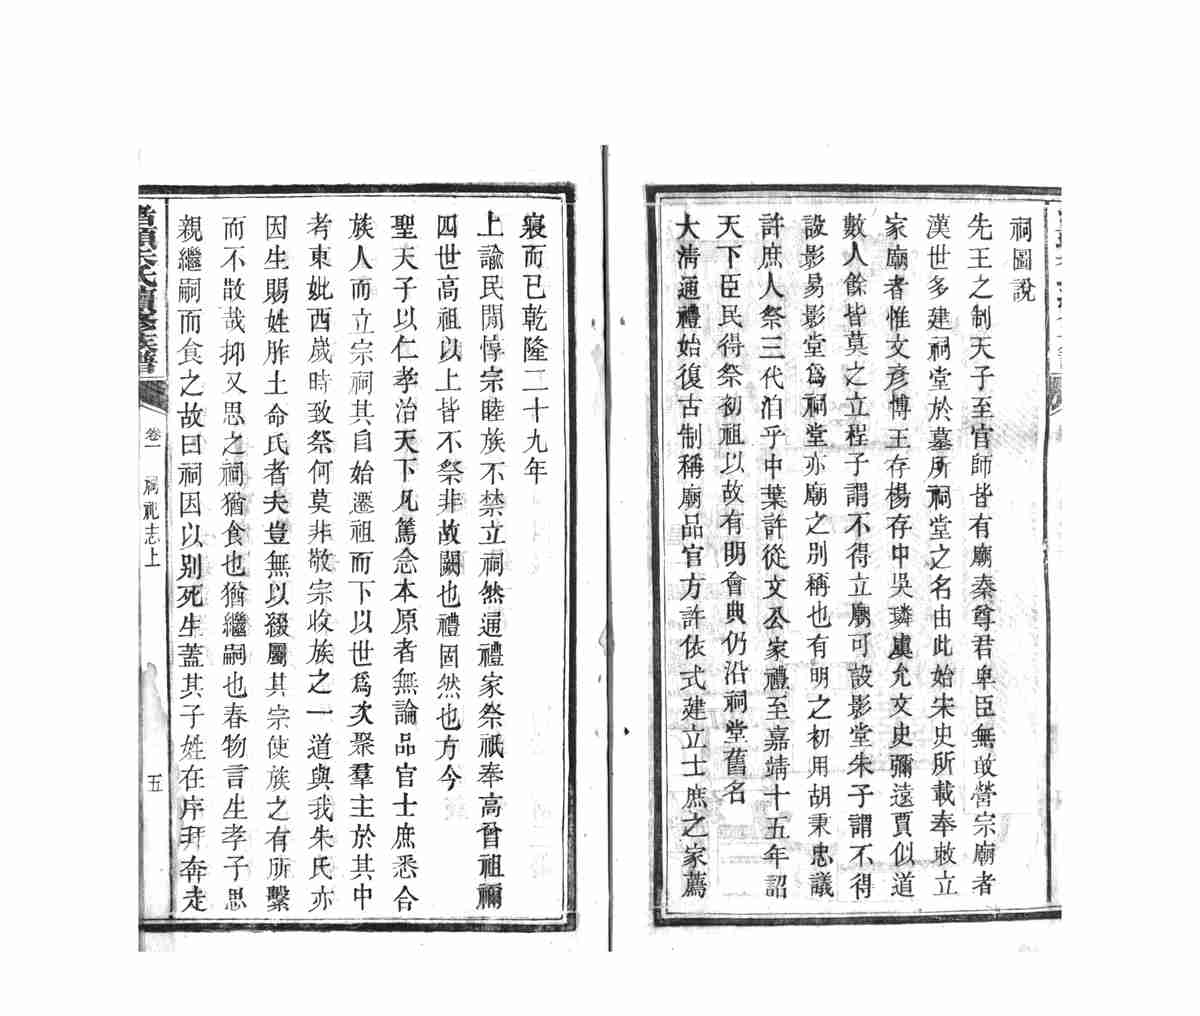 祠圖說
先王之制天子至官師皆有廟秦尊君卑臣無敢營宗廟者
漢世多建祠堂於墓所祠堂之名由此始宋史所載奉敕立
家廟者惟文彥博王存楊存中吳璘虞允文史彌遠賈似道
數人餘皆莫之立程子謂不得立廟可設影堂朱子謂不得
設影易影堂爲祠堂亦廟之別稱也有明之初用胡秉忠議
許庶人祭三代洎乎中葉許從文公家禮至嘉靖十五年詔
天下臣民得祭初祖以故有明會典仍沿祠堂舊名
大淸通禮始復古制稱廟品官方許依式建立士庶之家薦
寢而已乾隆二十九年
上諭民閒惇宗睦族不禁立祠然通禮家祭祇奉高曾祖禰
四世高祖以上皆不祭非故闕也禮固然也方今
聖天子以仁孝治天下凡篤念本原者無論品官士庶悉合
族人而立宗祠其自始遷祖而下以世爲次聚羣主於其中
考東妣西歲時致祭何莫非敬宗收族之一道與我朱氏亦
因生賜姓胙土命氏者夫豈無以綴屬其宗使族之有所繫
而不散哉抑又思之祠猶食也猶繼嗣也春物言生孝子思
親繼嗣而食之故曰祠因以別死生蓋其子姓在序拜奔走
卷一 祠祀志上 五